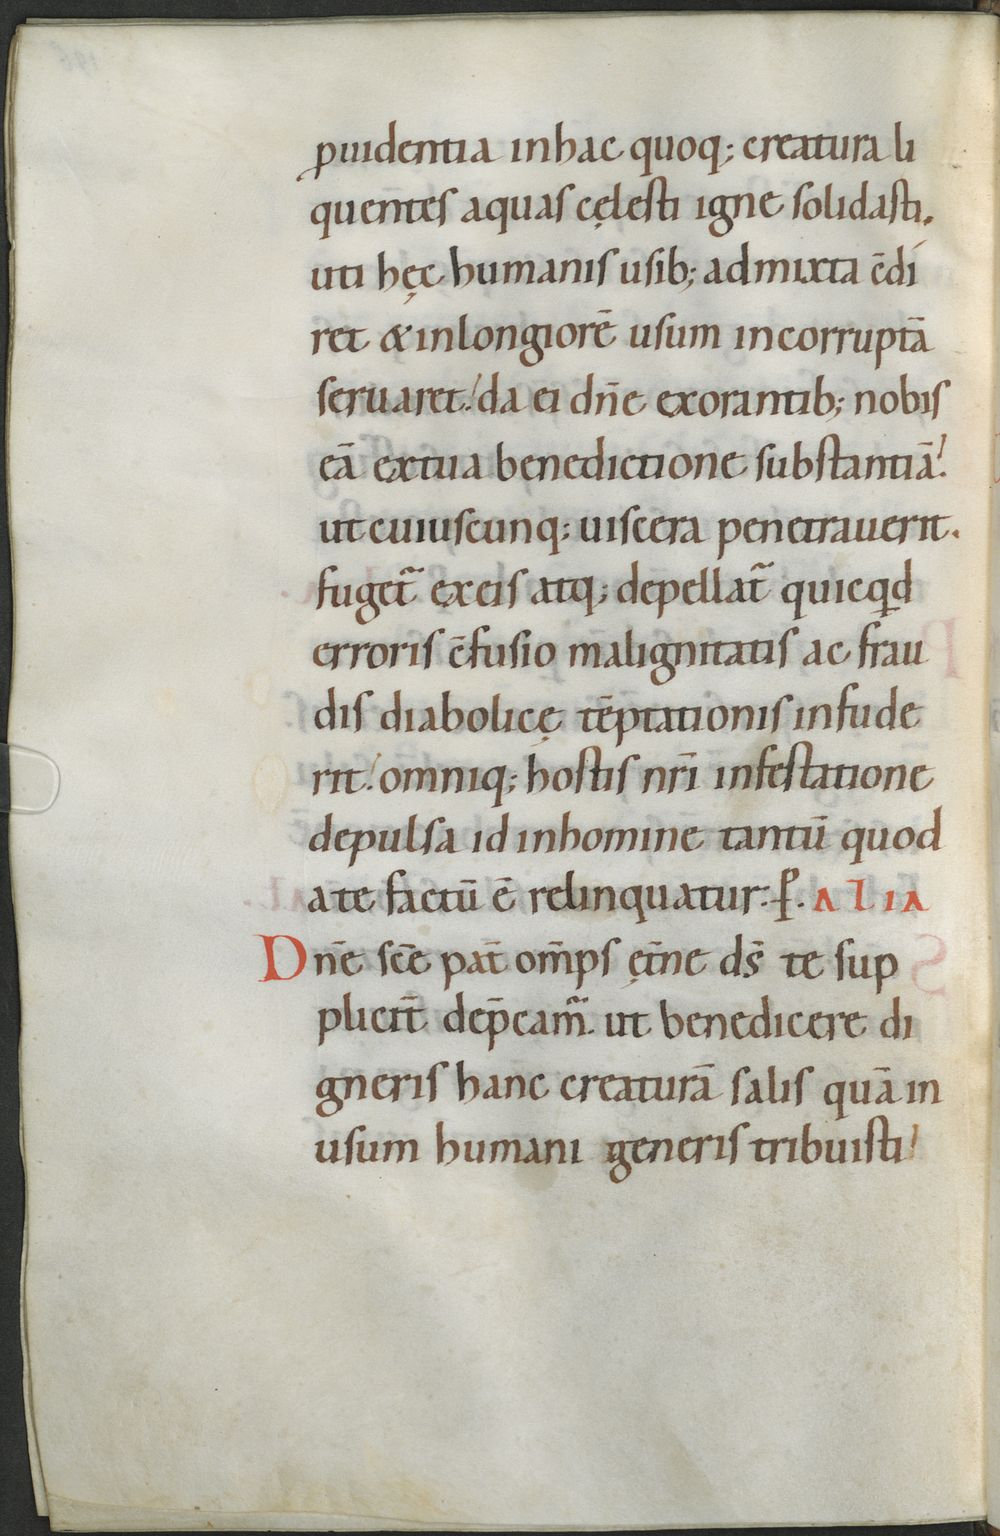 ꝓuidentia inhac quoq; creatura li
quentes aquas cęlesti igne solidasti.
uti hęc humanis usib; admixta c̄di
ret & inlongiorē usum incorruptā
seruaret. da ei dn̄e exorantib; nobis
eā extua benedictione substantiā.
ut cuiuscunq; uiscera penetrauerit.
fuget̃ exeis atq; depellat̃ quicqd
erroris c̄fusio malignitatis ac frau
dis diabolicę tēptationis infude
rit. omniq; hostis nr̄i infestatione
depulsa id inhomine tantū quod
a te factū ē relinquatur: ꝑ. ALIA
Dn̄e sc̄e pat̄ om̄ps ęt̄ne ds̄ te sup
plicit̄ dep̄cam̃. ut benedicere di
gneris hanc creaturā salis quā in
usum humani generis tribuisti